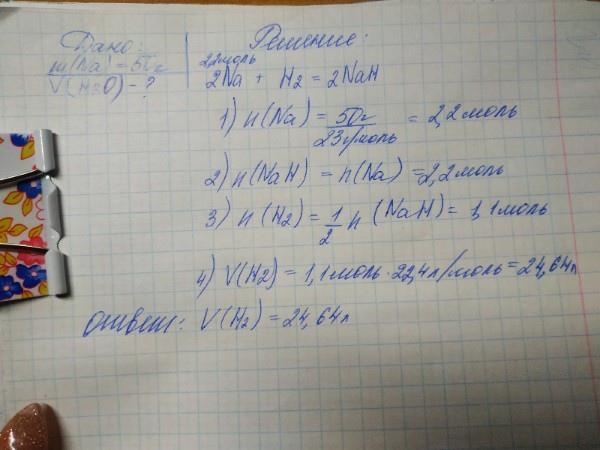 Дано:
m(Na) = 50г
V(H2O) - ?
Решение:
2,2моль
2Na + H2 = 2NaH
1) n(Na) = 50г / 23г/моль = 2,2моль
2) n(NaH) = n(Na) = 2,2моль
3) n(H2) = 1/2 n(NaH) = 1,1моль
4) V(H2) = 1,1моль · 22,4л/моль = 24,64л
ответ: V(H2) = 24,64л